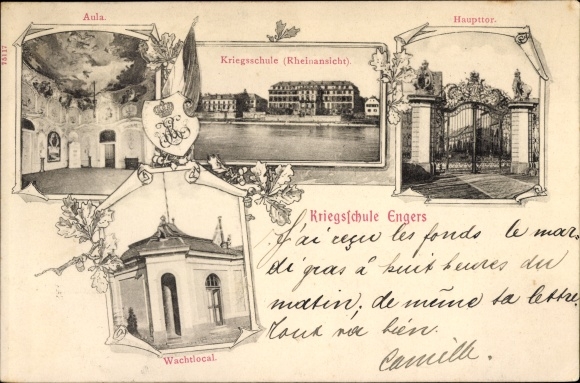 Aula.
Haupttor.
Kriegsschule (Rheinansicht).
75117
Kriegsschule Engers
J'ai reçu les fonds le mar-
di gras à huit heures du
matin; de même ta lettre.
Tout va bien.
Camille.
Wachtlocal.